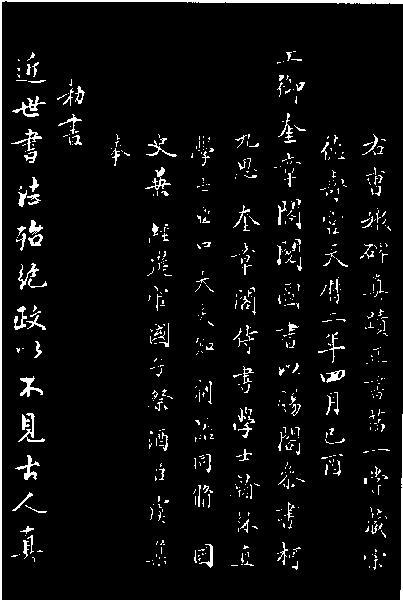 右曹娥碑真蹟正書第一嘗藏宋
德壽宮天曆二年四月己酉
上御奎章閣閱圖書以賜閣參書柯
九思 奎章閣侍書學士翰林直
學士亞中大夫知制誥同脩 國
史兼經筵官國子祭酒臣虞集
奉
勅書
近世書法殆絕政以不見古人真